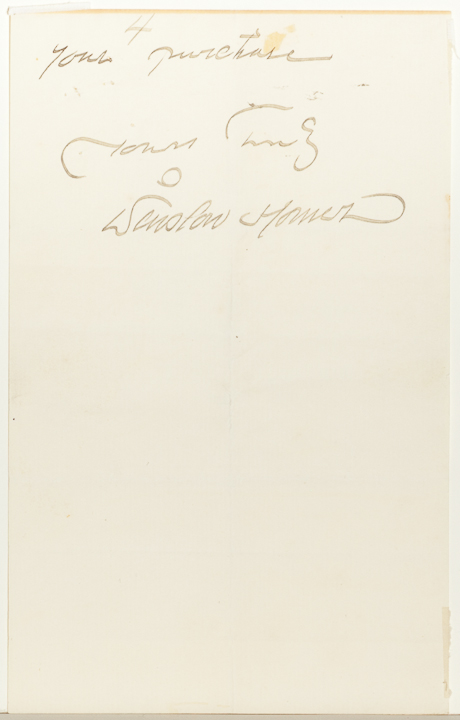 4
your purchase
Yours Truly
Winslow Homer